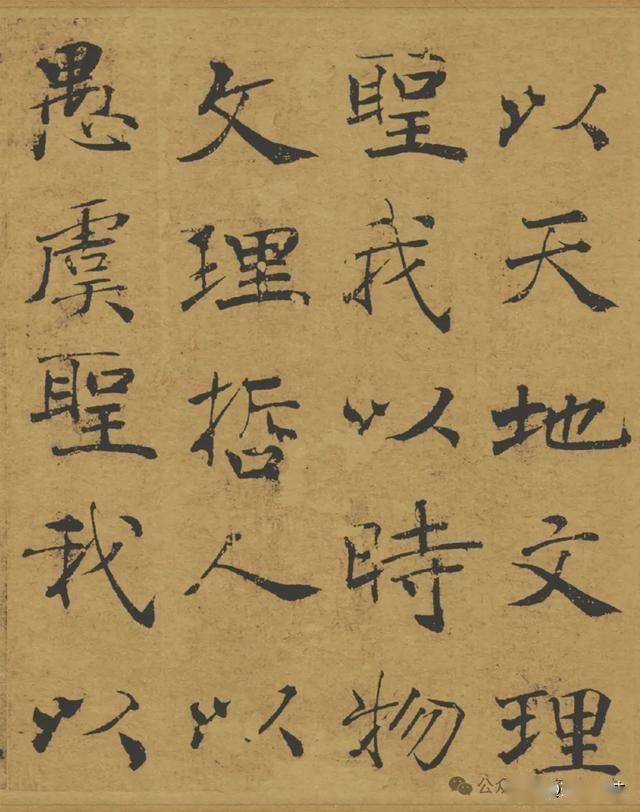 以天地文理
聖我以時物
文理哲人以
愚虞聖我以
公众